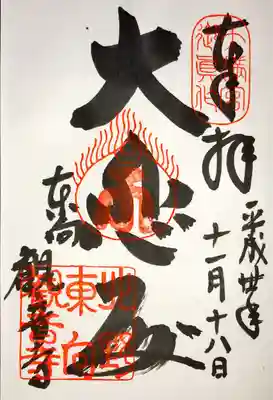 奉拝
平成卅年
十一月十八日
大悲殿
東向
観音寺
北野
東向
観音寺